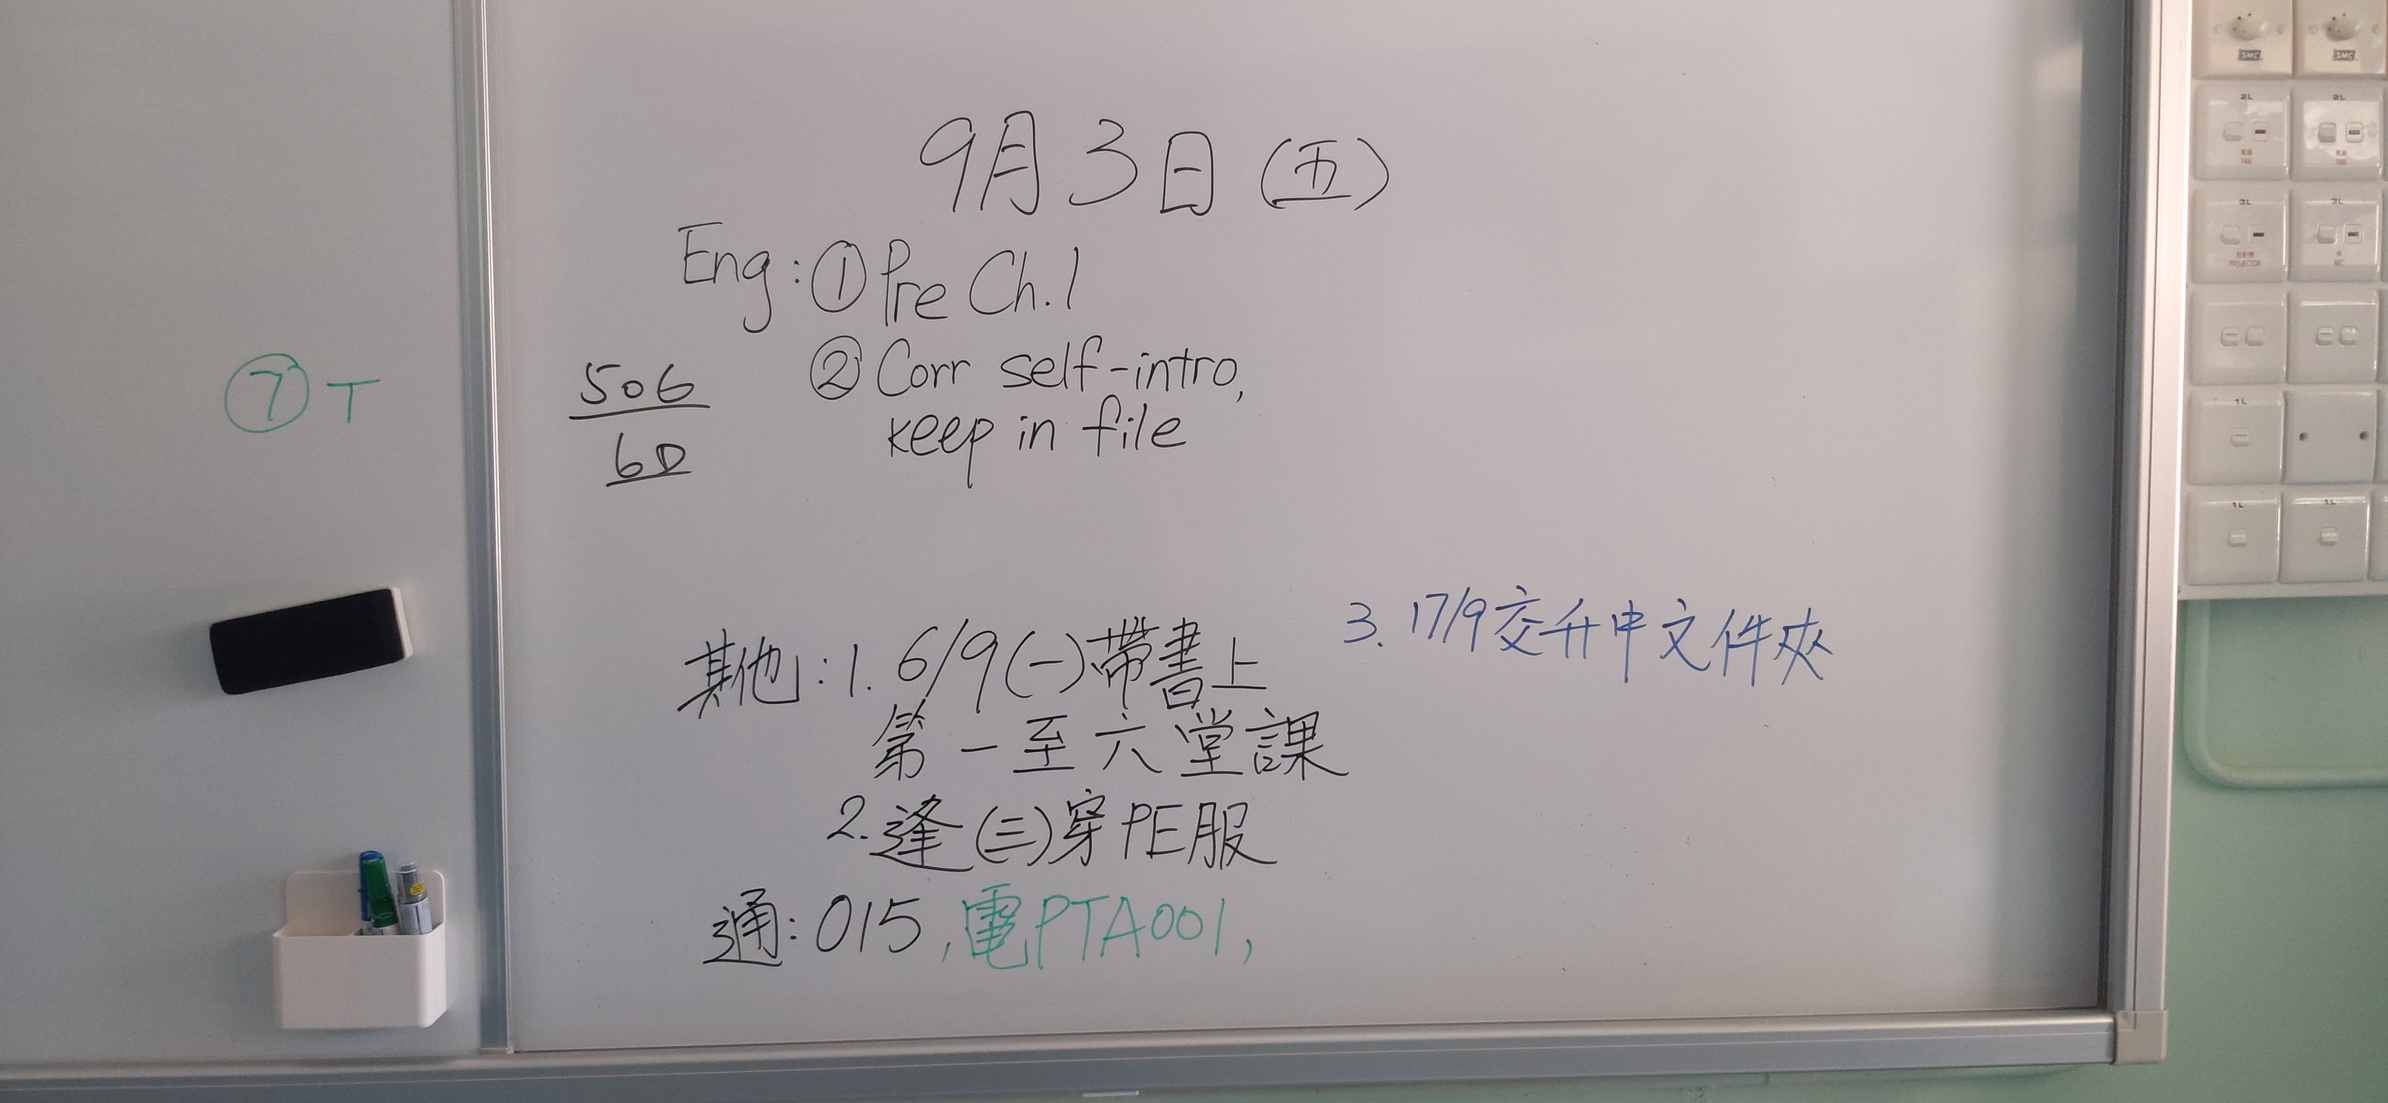 9月3日(五)
Eng:①Pre Ch.1
②Corr self-intro,
keep in file
506
6D
⑦T
其他:1. 6/9(一)帶書上
第一至六堂課
2.逢(三)穿PE服
3. 17/9交升中文件夾
通:015,電PTA001,
SMC SMC
2L 2L
FAN FAN
3L 3L
PROJECTOR MIC
1L
1L 1L